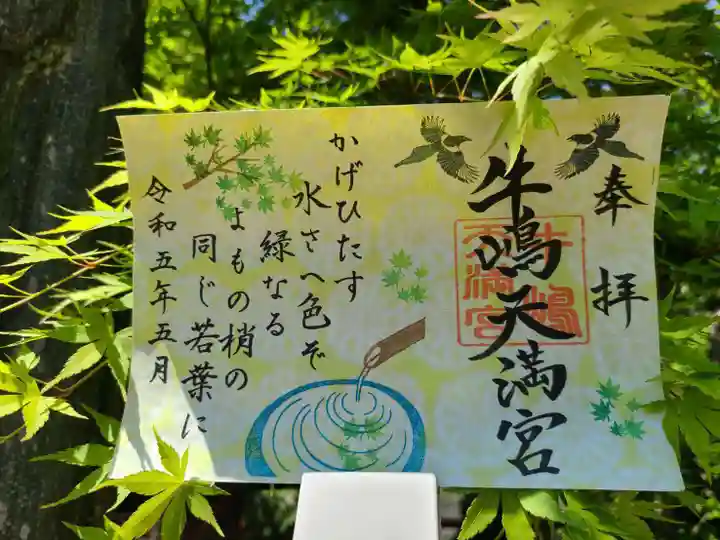 奉拝
牛嶋天満宮
牛嶋天満宮
かげひたす
水さへ色ぞ
緑なる
よもの梢の
同じ若葉に
令和五年五月